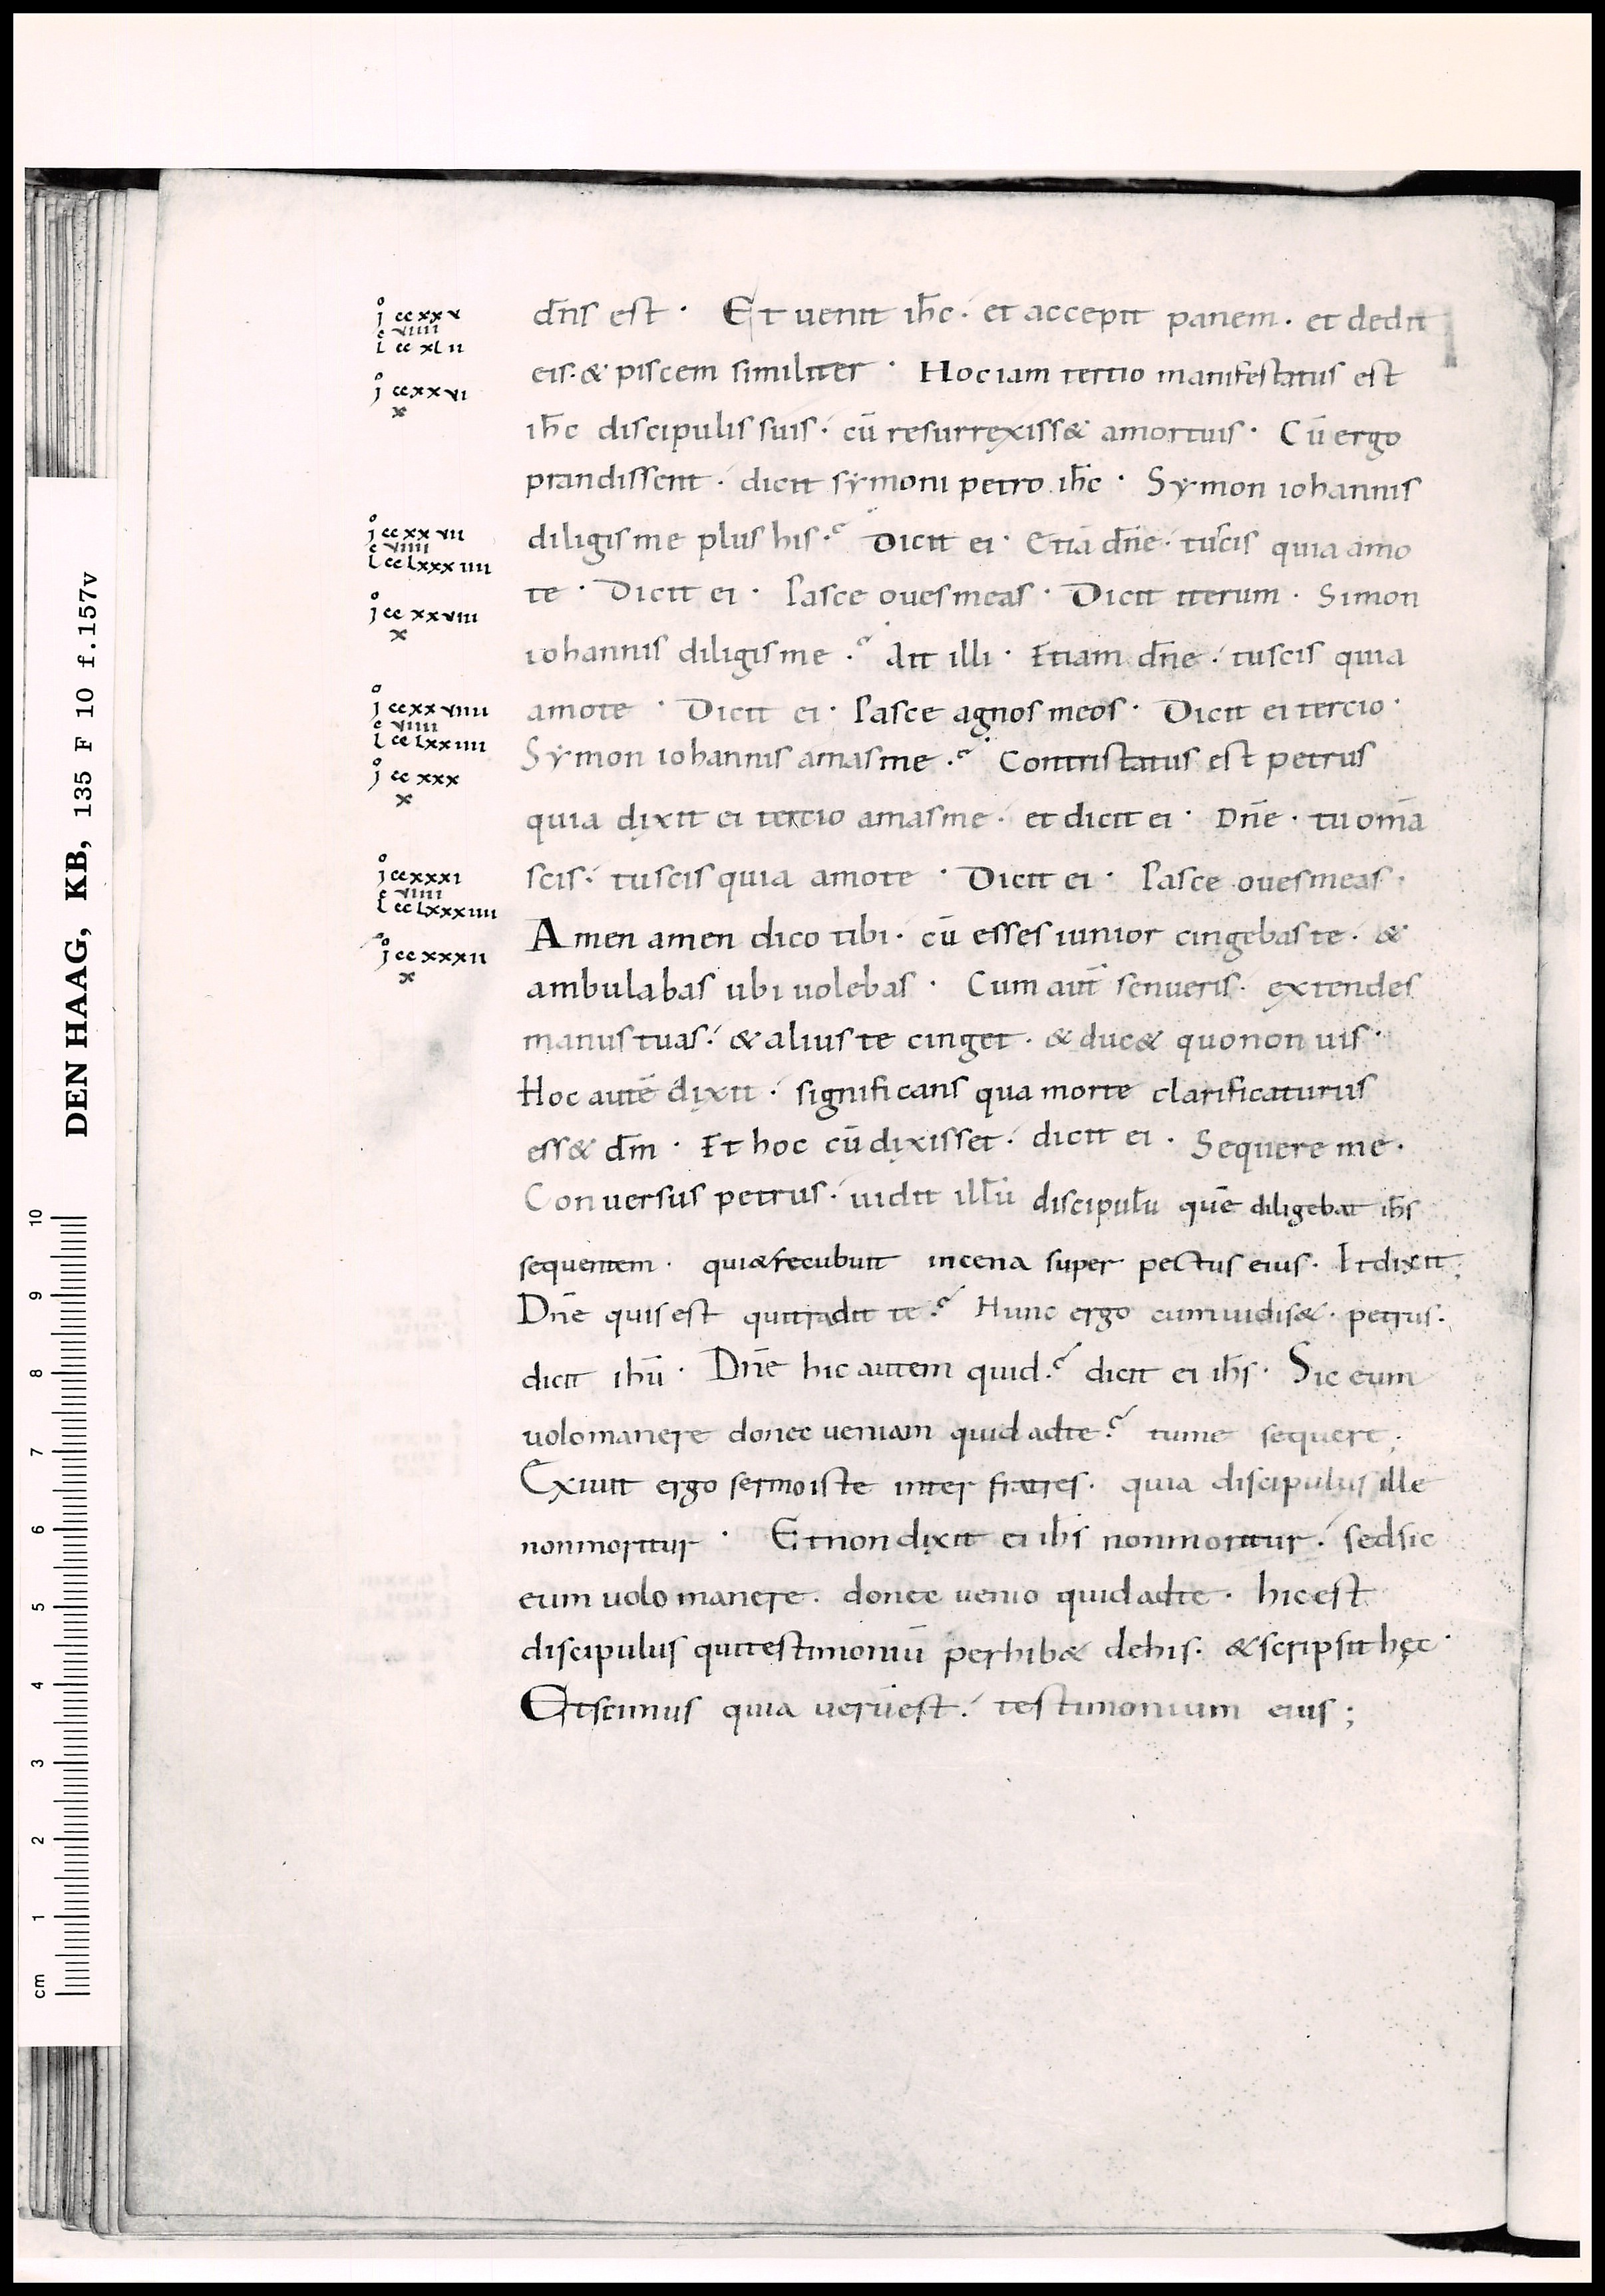 DEN HAAG, KB, 135 F 10 f.157v
10
9
8
7
6
5
4
3
2
1
cm
j ccxxv
c viiii
l ccxlii
j ccxxvi
x
j ccxxvii
c viiii
l cclxxxiiii
j ccxxviii
x
j ccxxviiii
c viiii
l cclxxiiii
j ccxxx
x
j ccxxxi
c viiii
l cclxxxiiii
j ccxxxii
x
dn̄s est · Et uenit ih̄c · et accepit panem · et dedit
eis · & piscem similiter · Hoc iam tertio manifestatus est
ih̄c discipulis suis · cū resurrexiss& amortuis · Cū ergo
prandissent · dicit sẏmoni petro ih̄c · Sẏmon iohannis
diligis me plus his ? Dicit ei · Etiā dn̄e · tuscis quia amo
te · Dicit ei · Pasce ouesmeas · Dicit iterum · Simon
iohannis diligisme ? Ait illi · Etiam dn̄e · tuscis quia
amote · Dicit ei · Pasce agnos meos · Dicit ei tercio ·
Sẏmon iohannis amasme ? Contristatus est petrus
quia dixit ei tercio amasme · et dicit ei · Dn̄e · tu om̄a
scis · tuscis quia amote · Dicit ei · Pasce ouesmeas ·
Amen amen dico tibi · cū esses iunior cingebaste · &
ambulabas ubi uolebas · Cum aut̄ senueris · extendes
manus tuas · & alius te cinget · & duc& quonon uis ·
Hoc autē dixit · significans qua morte clarificaturus
ess& dm̄ · Et hoc cū dixisset · dicit ei · Sequere me ·
Conuersus petrus · uidit illū discipulū quē diligebat ih̄s
sequentem · qui&recubuit incena super pectus eius · Et dixit ;
Dn̄e quis est quitradit te ? Hunc ergo cumuidis& · petrus ·
dicit ih̄u · Dn̄e hic autem quid ? dicit ei ih̄s · Sic eum
uolomanere donec ueniam quid adte ? tume sequere ;
Exiuit ergo sermoiste inter fratres · quia discipulus ille
nonmoritur · Etnon dixit ei ih̄s nonmoritur · sedsic
eum uolo manere · donec uenio quid adte · hic est
discipulus quitestimoniū perhib& dehis · &scripsit hęc ·
Etscimus quia uerūest · testimonium eius ;